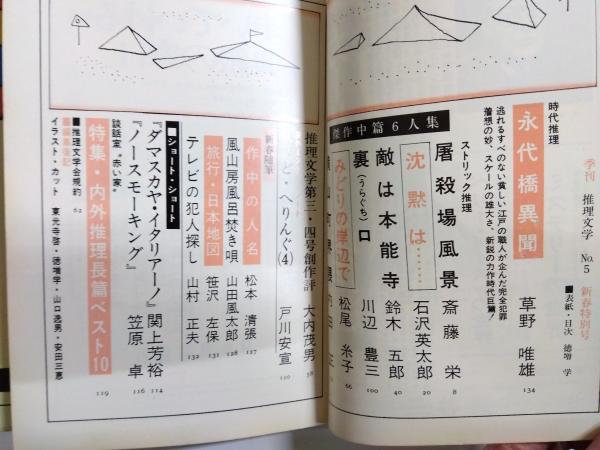 季刊 推理文学 No.5 新春特別号
■表紙・目次 徳増 学
時代推理
永代橋異聞 草野 唯雄 134
逃れるすべのない貧しい江戸の職人が企んだ完全犯罪
着想の妙、スケールの雄大さ、新鋭の力作時代巨篇!
傑作中篇6人集
ストリック推理
屠殺場風景 斎藤 栄 8
沈黙は…… 石沢英太郎 20
敵は本能寺 鈴木 五郎 40
裏(うらぐち)口 川辺 豊三 100
みどりの岸辺で 松尾 糸子 66
推理文学第三・四号創作評 大内茂男
ど・へりんぐ(4) 戸川安宣 110
新春随筆
作中の人名 松本 清張 127
風山房風呂焚き唄 山田風太郎 128
旅行・日本地図 笹沢 左保 131
テレビの犯人探し 山村 正夫 132
■ショート・ショート
『ダマスカヤ・イタリアーノ』 関上芳裕 114
『ノースモーキング』 笠原 卓 116
談話室 “赤い家”
特集・内外推理長篇ベスト10 119
■推理文学会規約 62
■編集後記
イラスト・カット 東元寺啓・徳増学・山口逸男・安田三恵